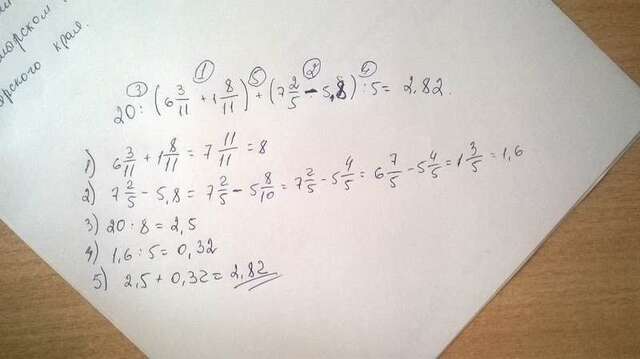 морском
орского края.
① ③ ⑤ ② ④
20 : (6 3/11 + 1 8/11) + (7 2/5 - 5,8) : 5 = 2,82.
1) 6 3/11 + 1 8/11 = 7 11/11 = 8
2) 7 2/5 - 5,8 = 7 2/5 - 5 8/10 = 7 2/5 - 5 4/5 = 6 7/5 - 5 4/5 = 1 3/5 = 1,6
3) 20 : 8 = 2,5
4) 1,6 : 5 = 0,32
5) 2,5 + 0,32 = 2,82